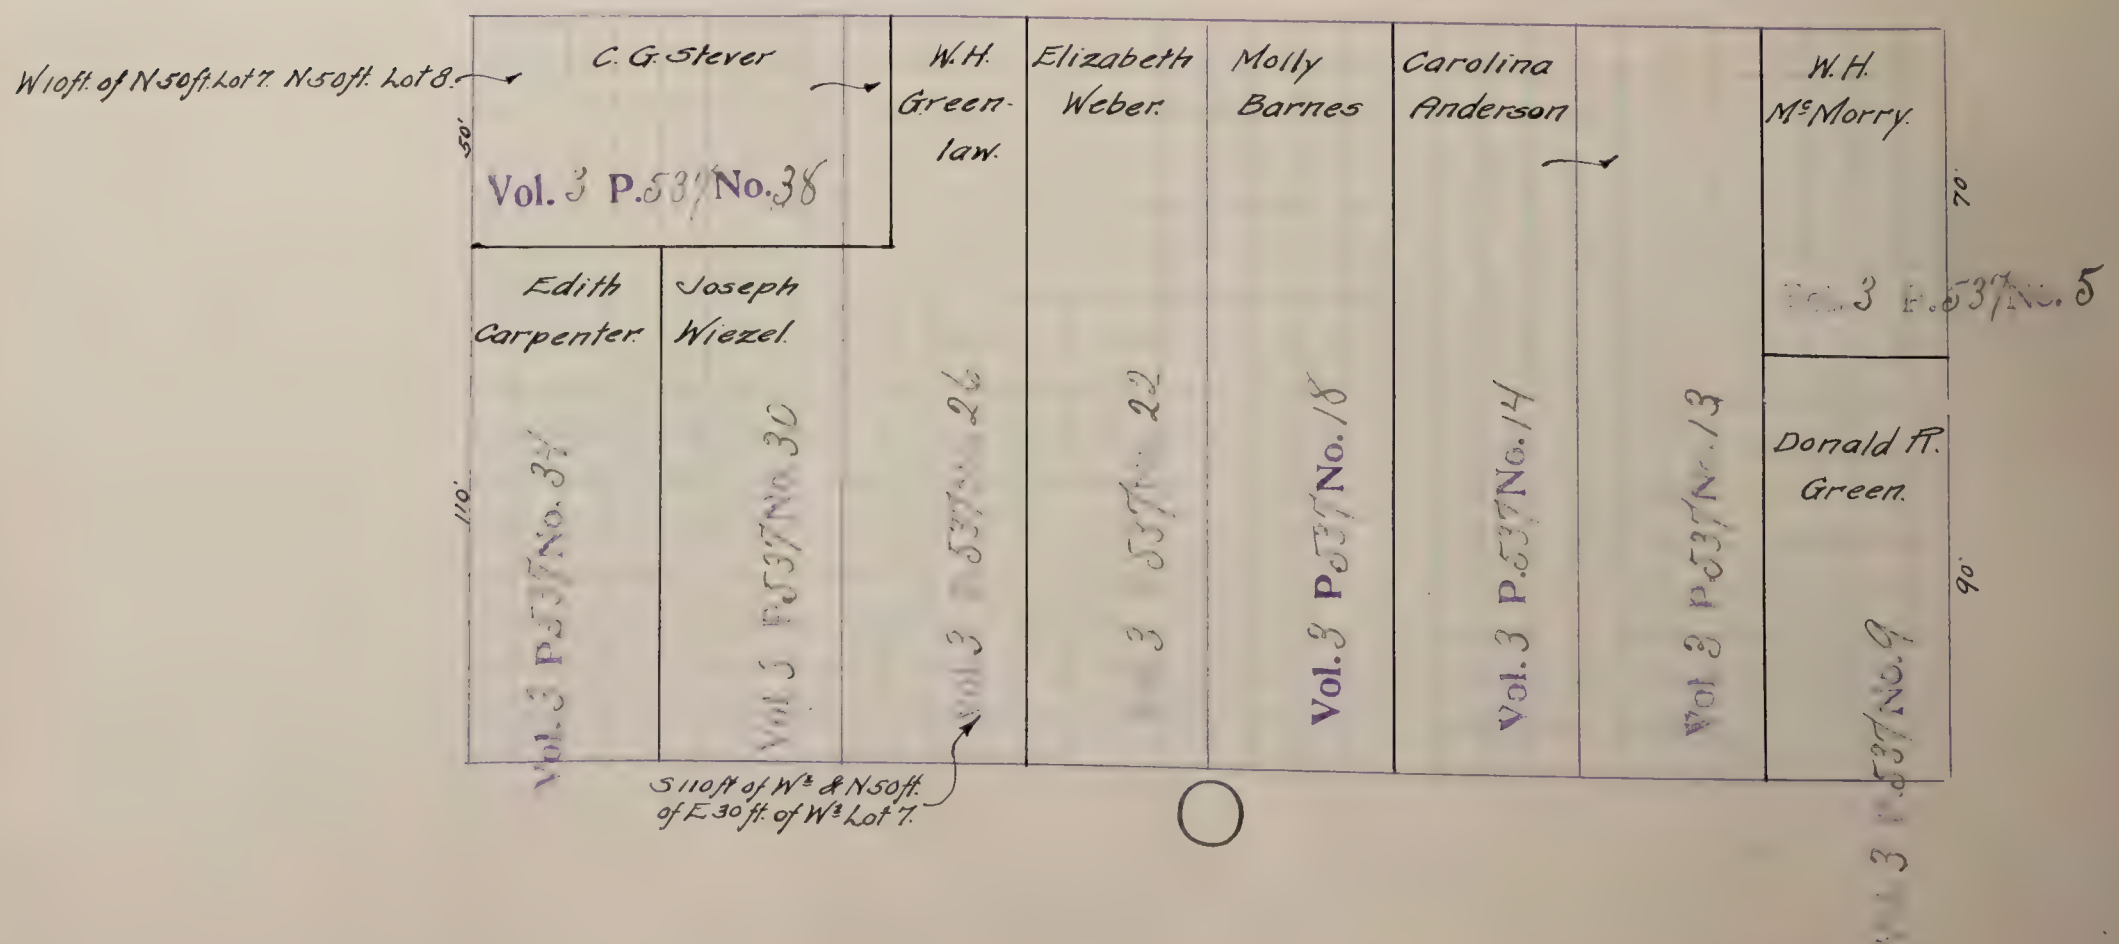 W10ft. of N50ft. Lot 7. N50ft. Lot 8.
C. G. Stever
50'
Vol. 3 P.537 No. 38
W. H.
Green-
law.
Elizabeth
Weber.
Molly
Barnes
Carolina
Anderson
W. H.
McMorry.
70'
3 P.537 No. 5
Edith
Carpenter.
110'
Vol. 3 P.537 No. 34
Joseph
Wiezel.
Vol. 3 P.537 No. 30
Vol. 3 P.537 No. 26
3 537 22
Vol. 3 P.537 No. 18
Vol. 3 P.537 No. 14
Vol. 3 P.537 No. 13
Donald R.
Green.
90'
Vol. 3 P.537 No. 9
S110ft of W½ & N50ft.
of E30ft. of W½ Lot 7.